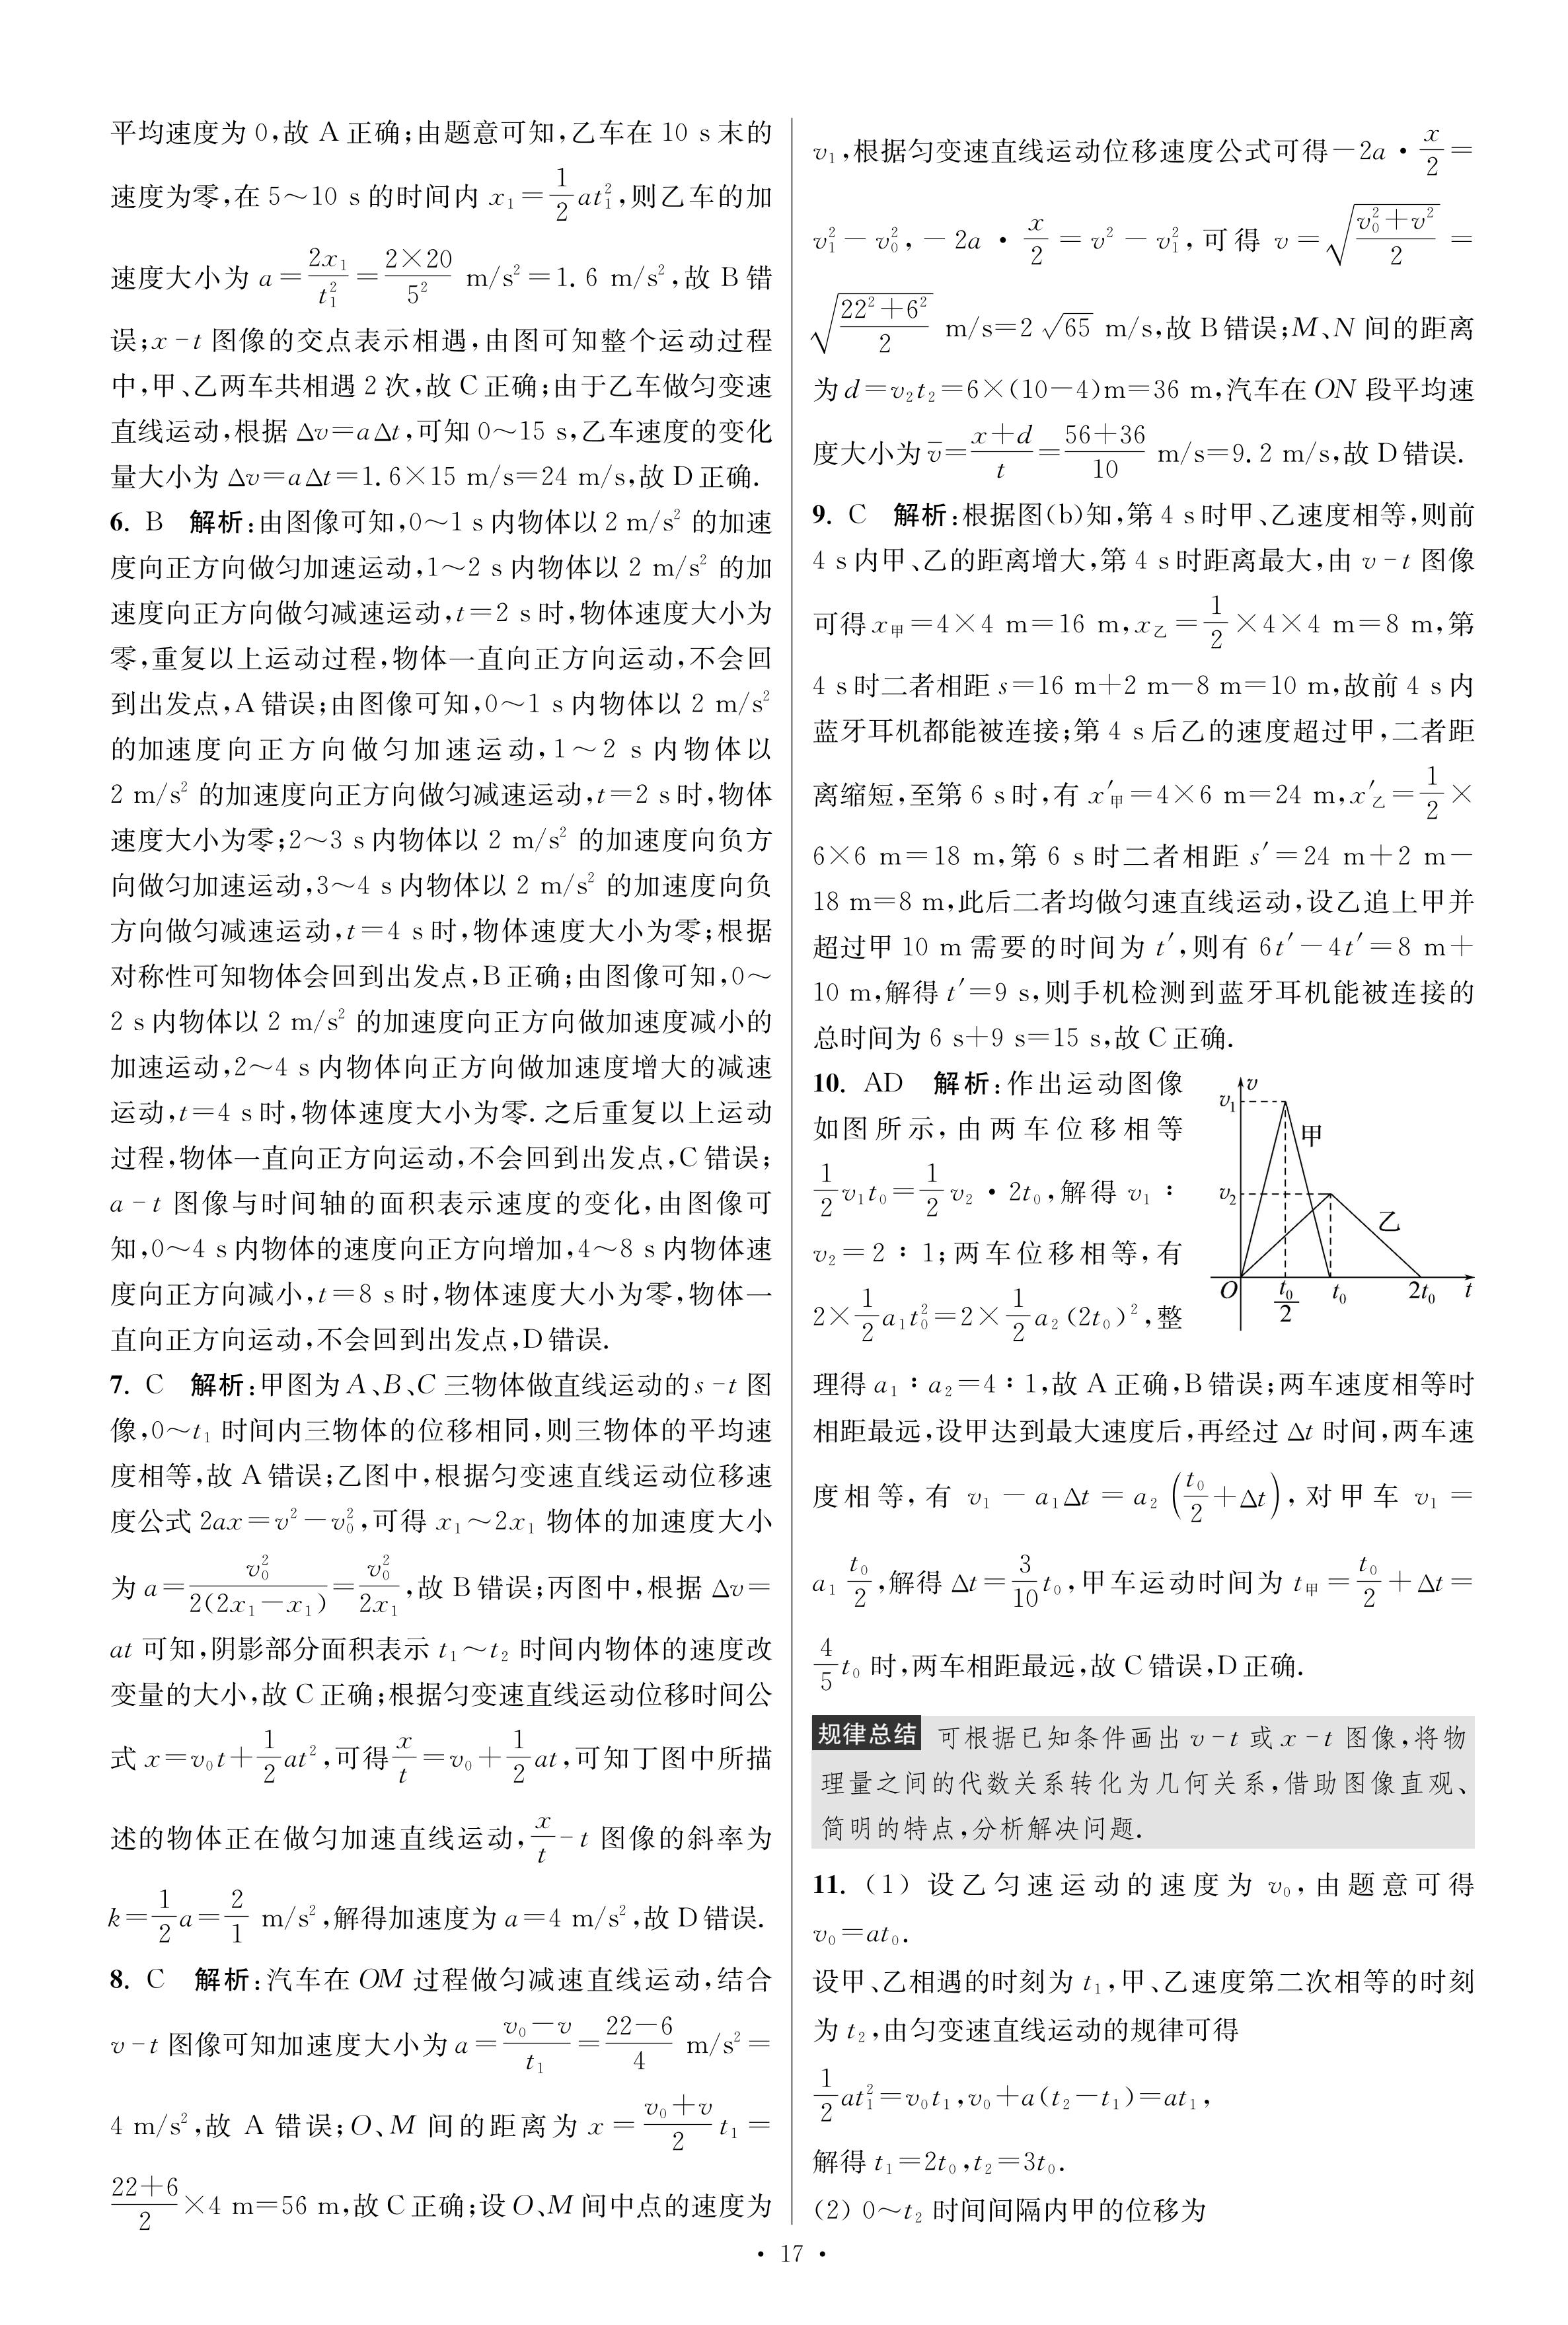 平均速度为 0,故 A 正确;由题意可知,乙车在 10 s 末的
速度为零,在 5～10 s 的时间内 x₁=\frac{1}{2}at₁²,则乙车的加
速度大小为 a=\frac{2x₁}{t₁²}=\frac{2×20}{5²} m/s²=1.6 m/s²,故 B 错
误;x-t 图像的交点表示相遇,由图可知整个运动过程
中,甲、乙两车共相遇 2 次,故 C 正确;由于乙车做匀变速
直线运动,根据 Δv=aΔt,可知 0～15 s,乙车速度的变化
量大小为 Δv=aΔt=1.6×15 m/s=24 m/s,故 D 正确.
6. B 解析:由图像可知,0～1 s 内物体以 2 m/s² 的加速
度向正方向做匀加速运动,1～2 s 内物体以 2 m/s² 的加
速度向正方向做匀减速运动,t=2 s 时,物体速度大小为
零,重复以上运动过程,物体一直向正方向运动,不会回
到出发点,A 错误;由图像可知,0～1 s 内物体以 2 m/s²
的加速度向正方向做匀加速运动,1～2 s 内物体以
2 m/s² 的加速度向正方向做匀减速运动,t=2 s 时,物体
速度大小为零;2～3 s 内物体以 2 m/s² 的加速度向负方
向做匀加速运动,3～4 s 内物体以 2 m/s² 的加速度向负
方向做匀减速运动,t=4 s 时,物体速度大小为零;根据
对称性可知物体会回到出发点,B 正确;由图像可知,0～
2 s 内物体以 2 m/s² 的加速度向正方向做加速度减小的
加速运动,2～4 s 内物体向正方向做加速度增大的减速
运动,t=4 s 时,物体速度大小为零. 之后重复以上运动
过程,物体一直向正方向运动,不会回到出发点,C 错误;
a-t 图像与时间轴的面积表示速度的变化,由图像可
知,0～4 s 内物体的速度向正方向增加,4～8 s 内物体速
度向正方向减小,t=8 s 时,物体速度大小为零,物体一
直向正方向运动,不会回到出发点,D 错误.
7. C 解析:甲图为 A、B、C 三物体做直线运动的 s-t 图
像,0～t₁ 时间内三物体的位移相同,则三物体的平均速
度相等,故 A 错误;乙图中,根据匀变速直线运动位移速
度公式 2ax=v²-v₀²,可得 x₁～2x₁ 物体的加速度大小
为 a=\frac{v₀²}{2(2x₁-x₁)}=\frac{v₀²}{2x₁},故 B 错误;丙图中,根据 Δv=
at 可知,阴影部分面积表示 t₁～t₂ 时间内物体的速度改
变量的大小,故 C 正确;根据匀变速直线运动位移时间公
式 x=v₀t+\frac{1}{2}at²,可得\frac{x}{t}=v₀+\frac{1}{2}at,可知丁图中所描
述的物体正在做匀加速直线运动,\frac{x}{t}-t 图像的斜率为
k=\frac{1}{2}a=\frac{2}{1} m/s²,解得加速度为 a=4 m/s²,故 D 错误.
8. C 解析:汽车在 OM 过程做匀减速直线运动,结合
v-t 图像可知加速度大小为 a=\frac{v₀-v}{t₁}=\frac{22-6}{4} m/s²=
4 m/s²,故 A 错误;O、M 间的距离为 x=\frac{v₀+v}{2}t₁=
\frac{22+6}{2}×4 m=56 m,故 C 正确;设 O、M 间中点的速度为
v₁,根据匀变速直线运动位移速度公式可得-2a·\frac{x}{2}=
v₁²-v₀²,-2a·\frac{x}{2}=v²-v₁²,可得 v=\sqrt{\frac{v₀²+v²}{2}}=
\sqrt{\frac{22²+6²}{2}} m/s=2\sqrt{65} m/s,故 B 错误;M、N 间的距离
为 d=v₂t₂=6×(10-4)m=36 m,汽车在 ON 段平均速
度大小为 \bar{v}=\frac{x+d}{t}=\frac{56+36}{10} m/s=9.2 m/s,故 D 错误.
9. C 解析:根据图(b)知,第 4 s 时甲、乙速度相等,则前
4 s 内甲、乙的距离增大,第 4 s 时距离最大,由 v-t 图像
可得 x甲=4×4 m=16 m,x乙=\frac{1}{2}×4×4 m=8 m,第
4 s 时二者相距 s=16 m+2 m-8 m=10 m,故前 4 s 内
蓝牙耳机都能被连接;第 4 s 后乙的速度超过甲,二者距
离缩短,至第 6 s 时,有 x′甲=4×6 m=24 m,x′乙=\frac{1}{2}×
6×6 m=18 m,第 6 s 时二者相距 s′=24 m+2 m-
18 m=8 m,此后二者均做匀速直线运动,设乙追上甲并
超过甲 10 m 需要的时间为 t′,则有 6t′-4t′=8 m+
10 m,解得 t′=9 s,则手机检测到蓝牙耳机能被连接的
总时间为 6 s+9 s=15 s,故 C 正确.
10. AD 解析:作出运动图像
如图所示,由两车位移相等
\frac{1}{2}v₁t₀=\frac{1}{2}v₂·2t₀,解得 v₁∶
v₂=2∶1;两车位移相等,有
2×\frac{1}{2}a₁t₀²=2×\frac{1}{2}a₂(2t₀)²,整
v
v₁
甲
v₂
乙
O \frac{t₀}{2} t₀ 2t₀ t
理得 a₁∶a₂=4∶1,故 A 正确,B 错误;两车速度相等时
相距最远,设甲达到最大速度后,再经过 Δt 时间,两车速
度相等,有 v₁-a₁Δt=a₂(\frac{t₀}{2}+Δt),对甲车 v₁=
a₁\frac{t₀}{2},解得 Δt=\frac{3}{10}t₀,甲车运动时间为 t甲=\frac{t₀}{2}+Δt=
\frac{4}{5}t₀ 时,两车相距最远,故 C 错误,D 正确.
规律总结 可根据已知条件画出 v-t 或 x-t 图像,将物
理量之间的代数关系转化为几何关系,借助图像直观、
简明的特点,分析解决问题.
11. (1) 设乙匀速运动的速度为 v₀,由题意可得
v₀=at₀.
设甲、乙相遇的时刻为 t₁,甲、乙速度第二次相等的时刻
为 t₂,由匀变速直线运动的规律可得
\frac{1}{2}at₁²=v₀t₁,v₀+a(t₂-t₁)=at₁,
解得 t₁=2t₀,t₂=3t₀.
(2) 0～t₂ 时间间隔内甲的位移为
· 17 ·